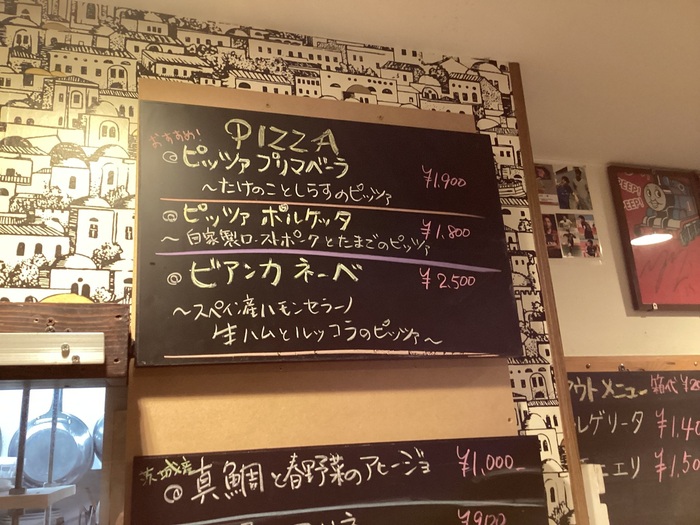 おすすめ!
PIZZA
@ピッツァ プリマベーラ
¥1,900
〜たけのことしらすのピッツァ
@ピッツァ ポルケッタ
¥1,800
〜自家製ローストポークとたまごのピッツァ
@ビアンカ ネーベ
¥2,500
〜スペイン産ハモンセラーノ
生ハムとルッコラのピッツァ〜
@真鯛と春野菜のアヒージョ
¥1,000
¥900
PEEP!
PEEP!
ウトメニュー
箱代
レゲリータ
¥1,40
エリ
¥1,50